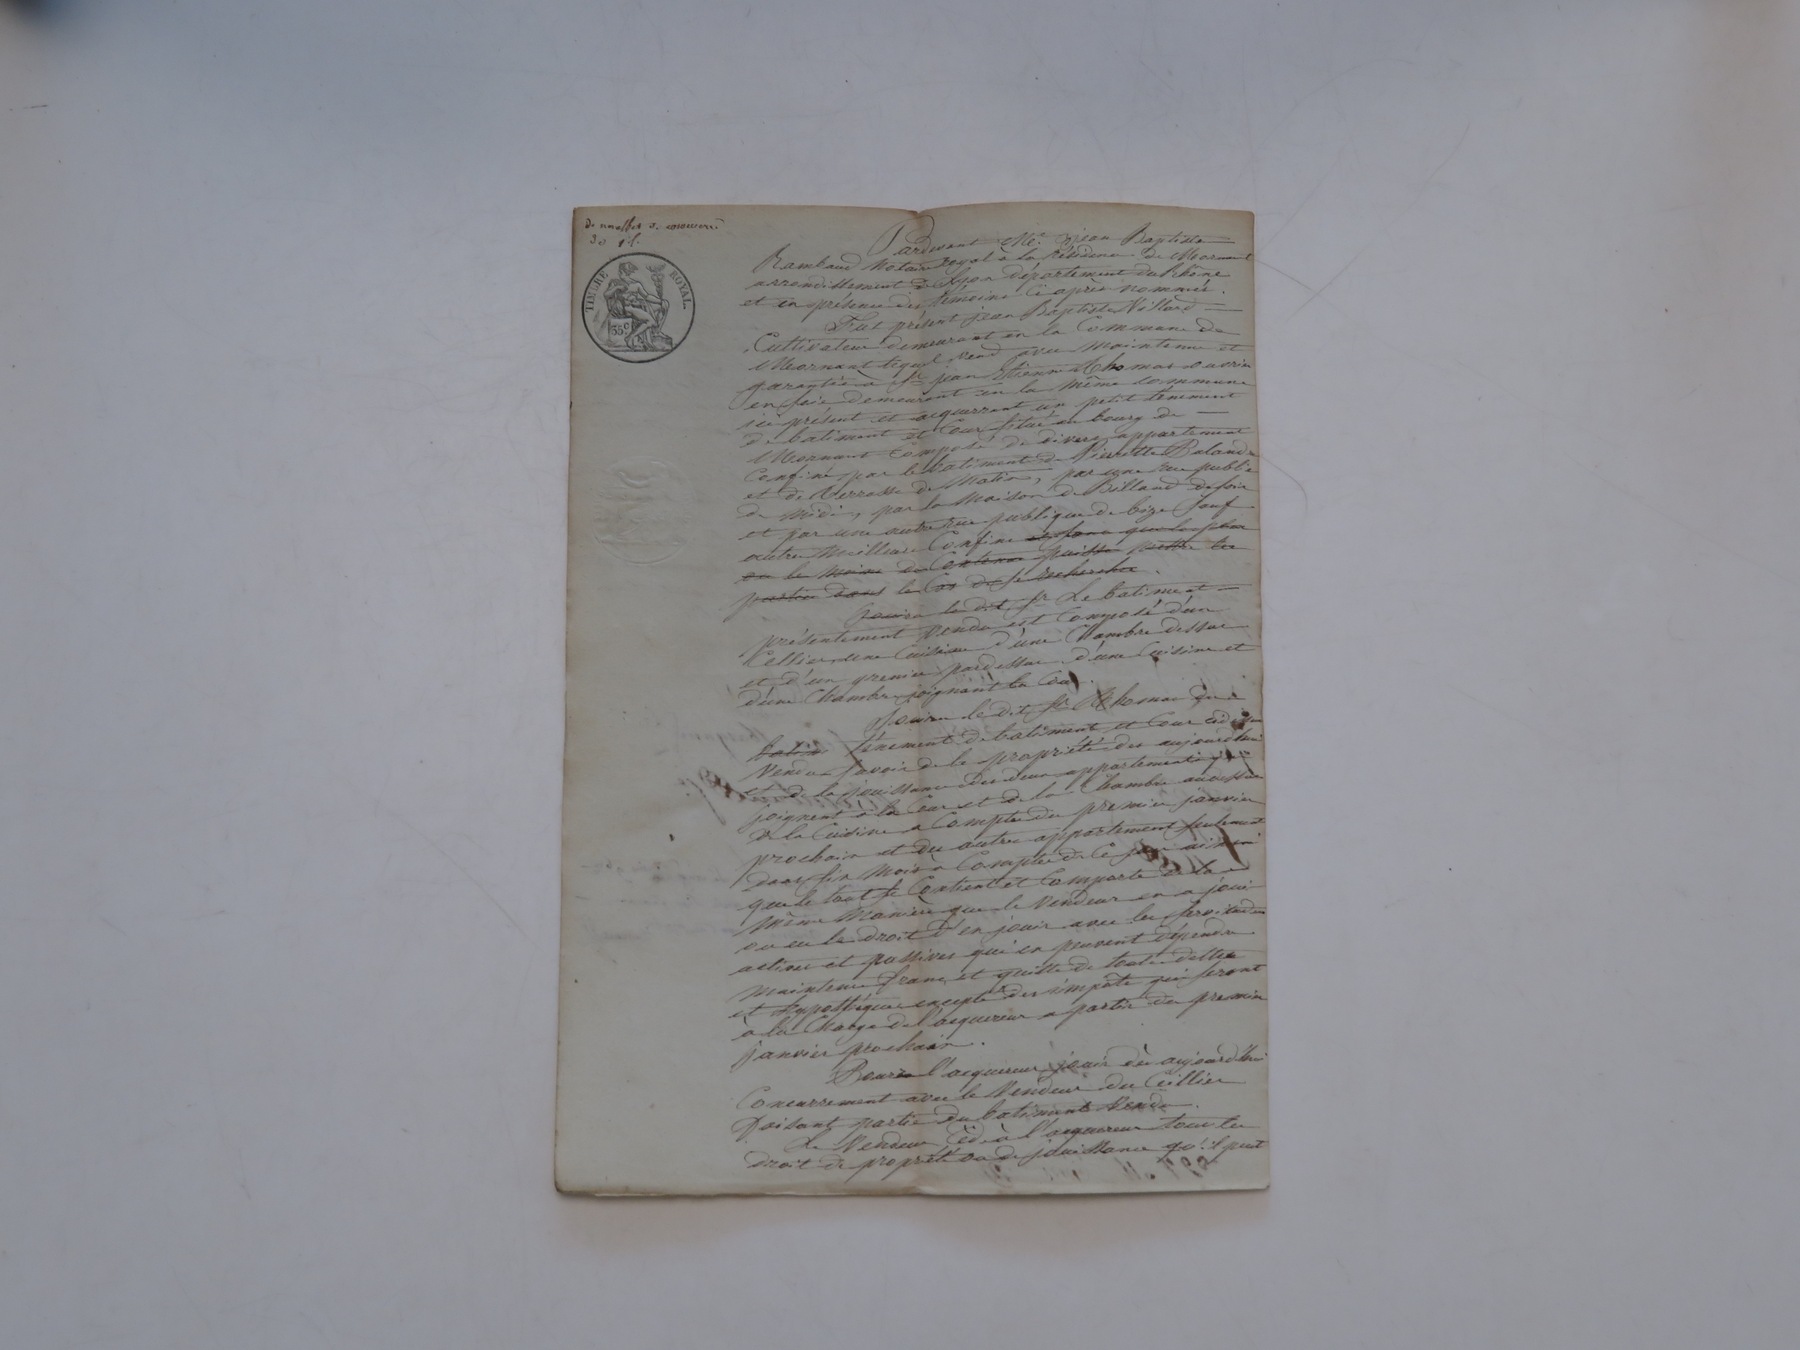 TIMBRE ROYAL.
35c
Pardevant Me. jean Baptiste
Rambaud Notaire royal à la résidence de Mornant
arrondissement de Lyon département du Rhône
et en présence des témoins ci après nommés.
Fut présent jean Baptiste Villard
Cultivateur demeurant en la Commune de
Mornant lequel vend avec maintenue et
garantie à Sr. jean Etienne Thomas ouvrier
en soie demeurant en la même commune
ici présent et acquerrent un petit tennement
de batiment et Cour situé au bourg de
Mornant Composé de divers appartement
Confiné par le batiment de Pierrette Baland
et de terrasse de Matin, par une rue publi
de midi, par la Maison de Billand de soir
et par une autre rue publique de bize sauf
autre Meilleur Confins et sans que le plus
ou le moins de Contenu puisse
parties dans le Cas de se rechercher.
jouira le dit Sr. Le batiment
présentement vendu est Composé d'un
Cellier, une Cuisine d'une Chambre dessus
et d'un grenier pardessus d'une Cuisine et
d'une Chambre joignant la Cour.
Jouira le dit Sr. Thomas du
batim tènement de batiment et Cour
Vendu savoir de la propriété des aujourd'hui
et de la jouissance des deux appartements qui
joignent à la Cour et de la Chambre audessus
de la Cuisine a Compter du premier janvier
prochain et des autres appartement seulement
dans six Mois a Compter de Ce jour ainsi
que le tout se Contient et Comporte de la
même Manière que le Vendeur en a joui
ou eu le droit d'en jouir avec les servitudes
actives et passives qui en peuvent dépendre
maintenu franc et quitte de toute dettes
et hypothèques excepté des impôts qui seront
à la Charge de l'acquereur a partir du premier
janvier prochain.
Pourra l'acquereur jouir dès aujourd'hui
Concurrement avec le Vendeur du Cellier
faisant partie du batiment vendu.
Le Vendeur Cède à l'acquereur tous les
droit de propriété ou de jouissance qu'il peut